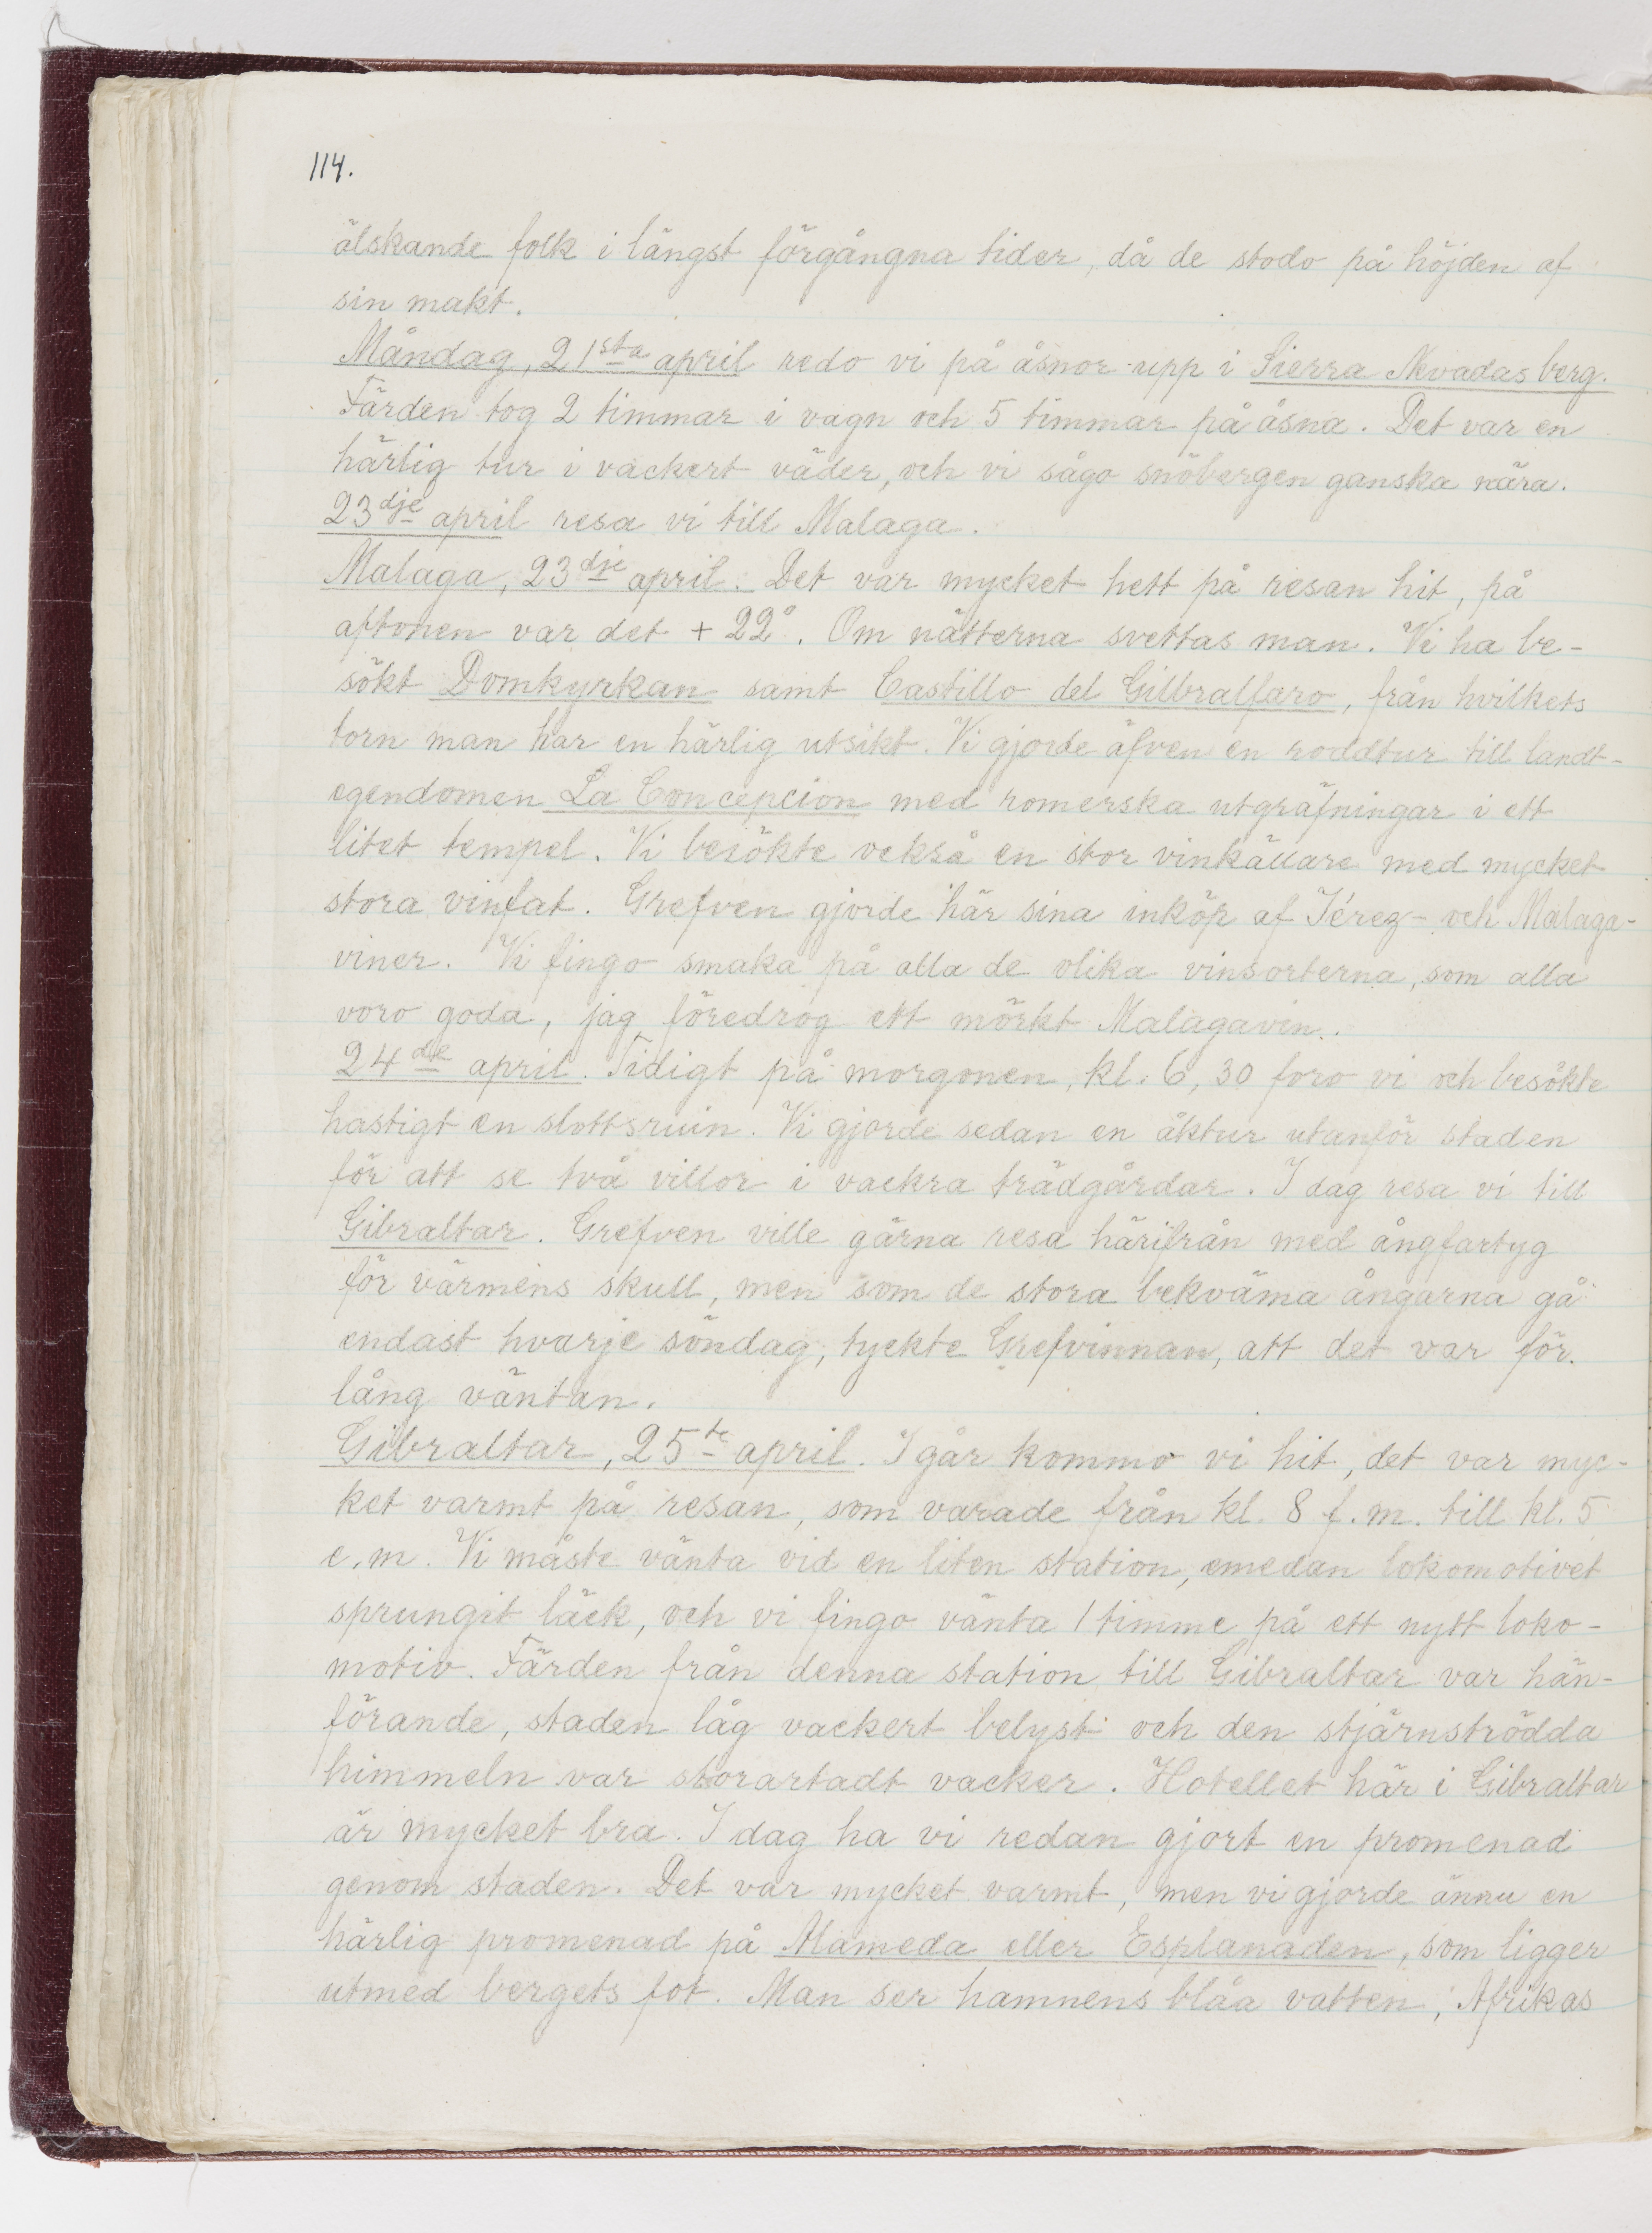 114.
älskande folk i längst förgångna tider, då de stodo på höjden af
sin makt.
Måndag, 21sta april redo vi på åsnor upp i Sierra Nevadas berg.
Färden tog 2 timmar i vagn och 5 timmar på åsna. Det var en
härlig tur i vackert väder, och vi sågo snöbergen ganska nära.
23dje april resa vi till Malaga.
Malaga, 23dje april. Det var mycket hett på resan hit, på
aftonen var det + 22°. Om nätterna svettas man. Vi ha be-
sökt Domkyrkan samt Castillo del Gilbralfaro, från hvilkets
torn man har en härlig utsikt. Vi gjorde äfven en roddtur till landt-
egendomen La Concepcion med romerska utgräfningar i ett
litet tempel. Vi besökte också en stor vinkällare med mycket
stora vinfat. Grefven gjorde här sina inköp af Jérez- och Malaga-
viner. Vi fingo smaka på alla de olika vinsorterna, som alla
voro goda, jag föredrog ett mörkt Malagavin.
24de april. Tidigt på morgonen, kl. 6,30 foro vi och besökte
hastigt en slottsruin. Vi gjorde sedan en åktur utanför staden
för att se två villor i vackra trädgårdar. I dag resa vi till
Gibraltar. Grefven ville gärna resa härifrån med ångfartyg
för värmens skull, men som de stora bekväma ångarna gå
endast hvarje söndag, tyckte Grefvinnan, att det var för
lång väntan.
Gibraltar, 25te april. I går kommo vi hit, det var myc-
ket varmt på resan, som varade från kl. 8 f.m. till kl. 5
e.m. Vi måste vänta vid en liten station, emedan lokomotivet
sprungit läck, och vi fingo vänta 1 timme på ett nytt loko-
motiv. Färden från denna station till Gibraltar var hän-
förande, staden låg vackert belyst och den stjärnströdda
himmeln var storartadt vacker. Hotellet här i Gibraltar
är mycket bra. I dag ha vi redan gjort en promenad
genom staden. Det var mycket varmt, men vi gjorde ännu en
härlig promenad på Alameda eller Esplanaden, som ligger
utmed bergets fot. Man ser hamnens blåa vatten, Afrikas